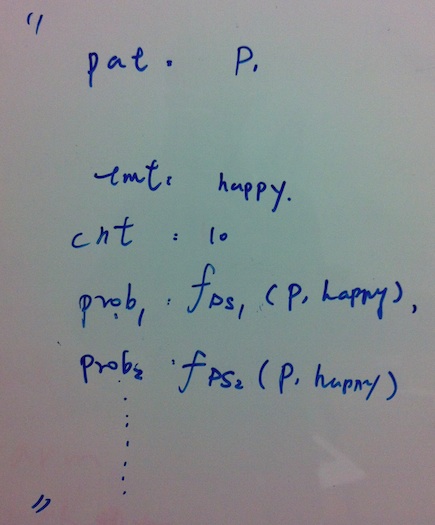 "
pat : P,
emt: happy.
cnt : 10
prob₁ : f_PS₁ (P, happy),
prob₂ : f_PS₂ (P, happy)
"